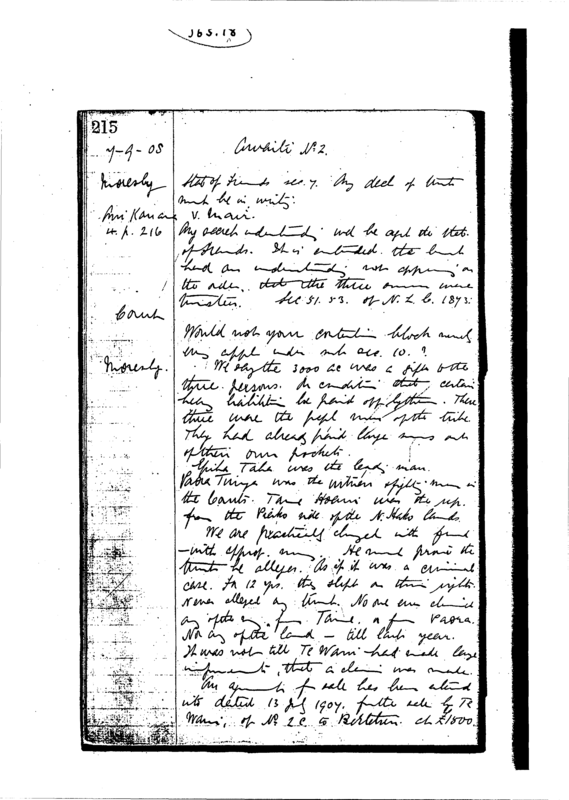 J65.18
215
7-9-08
Awaiti No 2.
Moresby
Stat of Frauds sec. 7. Any decl of trust
must be in writg.
v. Mair.
4. p. 216
Any secret understandg wd be agst the Stat.
of Frauds. It is contended the Court
had an understanding not appearing on
the order, that the three owners were
trustees. Sec 51. 53. of N. L. C. 1873.
Court
Would not your contention block nearly
every appl under sub sec. 10. ?
Moresby.
We say the 3000 ac was a gift to the
three persons. On condition that certain
heavy liabilities be paid off by them. These
three were the ppl men of the tribe.
They had already paid large sums out
of their own pockets.
Epiha Taha was the leadg man.
Paora Tiunga was the witness & fightg man in
the Courts. Tame Hoani was the rep.
from the Piako side of the N. Hako lands.
We are practically charged with fraud
- with approp. money. He must prove the
trust he alleges. As if it was a criminal
case. For 12 yrs. they slept on their rights.
Never alleged any trust. No one ever claimed
any of the money from Tame, or from Paora.
Nor any of the land - till last year.
It was not till Te Wani had made large
improvements, that a claim was made.
An agreement for sale has been entered
into dated 13 July 1907. for the sale by Te
Wani, of No 2 C to at £1800.